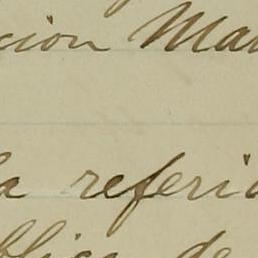 cion Mar
la referid
blica de